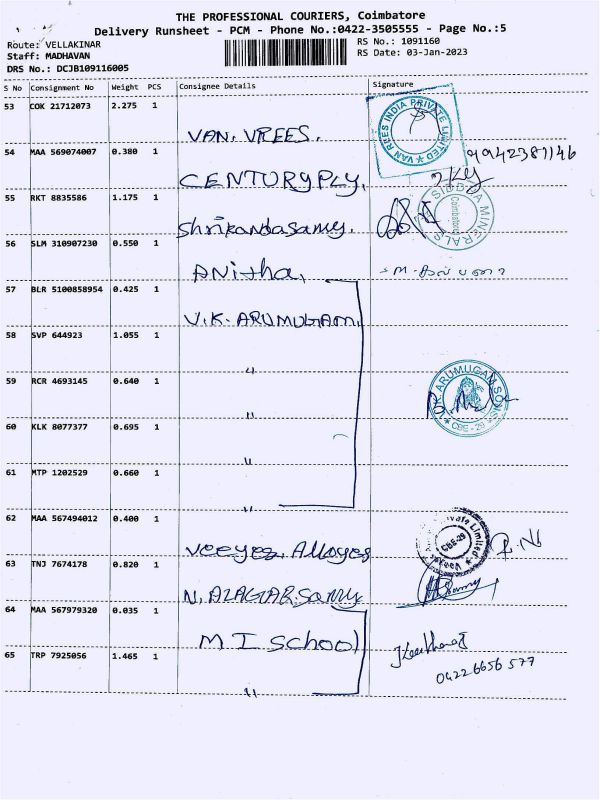 THE PROFESSIONAL COURIERS, Coimbatore
Delivery Runsheet - PCM - Phone No.:0422-3505555 - Page No.:5
Route: VELLAKINAR
RS No.: 1091160
Staff: MADHAVAN
RS Date: 03-Jan-2023
DRS No.: DCJB109116005
S No Consignment No Weight PCS Consignee Details Signature
53 COK 21712073 2.275 1 VAN. VREES.
VAN REES INDIA PRIVATE LIMITED
54 MAA 569074007 0.380 1 CENTURYPLY,
9942381146
55 RKT 8835586 1.175 1 Shrikandasamy.
MINERALS
Coimbatore
56 SLM 310907230 0.550 1 Anitha,
57 BLR 5100858954 0.425 1 V.K. ARUMUGAM,
58 SVP 644923 1.055 1 "
59 RCR 4693145 0.640 1 "
ARUMUGAM SONS
CBE - 29
60 KLK 8077377 0.695 1 "
61 MTP 1202529 0.660 1 "
62 MAA 567494012 0.400 1 Veeyes Alloyes
Private Limited
CBE-29
63 TNJ 7674178 0.820 1 N. AZAGAR.Samy
64 MAA 567979320 0.035 1 M I School
65 TRP 7925056 1.465 1 "
04226656577